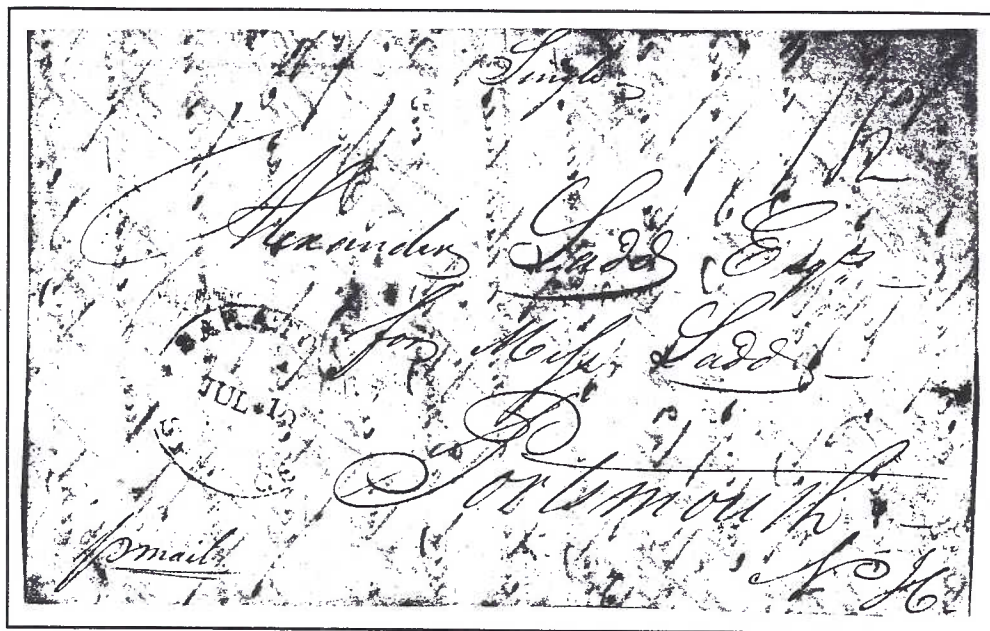 Single
12
Alexander Ladd Esqr
for Miss Ladd
JUL
Portsmouth
N H
pr mail